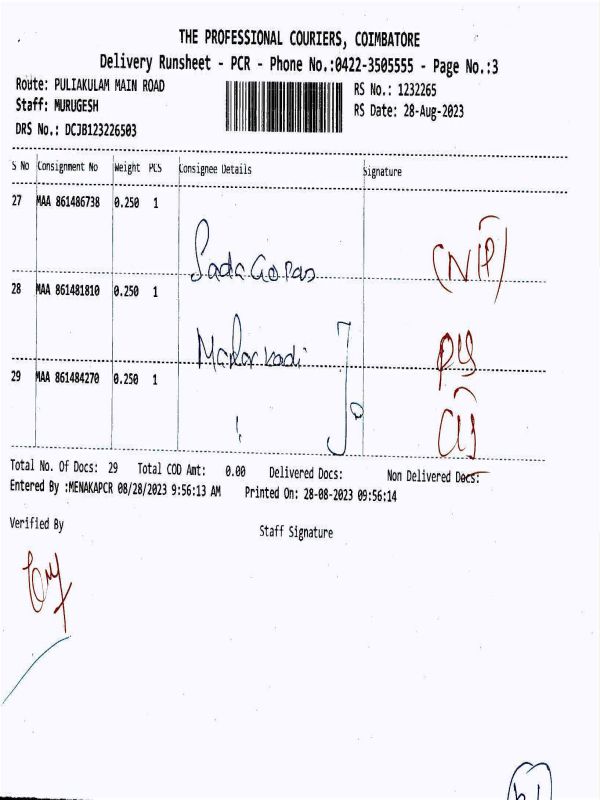 THE PROFESSIONAL COURIERS, COIMBATORE
Delivery Runsheet - PCR - Phone No.:0422-3505555 - Page No.:3
Route: PULIAKULAM MAIN ROAD
RS No.: 1232265
Staff: MURUGESH
RS Date: 28-Aug-2023
DRS No.: DCJB123226503
S No Consignment No Weight PCS Consignee Details Signature
27 MAA 861486738 0.250 1
28 MAA 861481810 0.250 1
29 MAA 861484270 0.250 1
Total No. Of Docs: 29 Total COD Amt: 0.00 Delivered Docs: Non Delivered Docs:
Entered By :MENAKAPCR 08/28/2023 9:56:13 AM Printed On: 28-08-2023 09:56:14
Verified By
Staff Signature